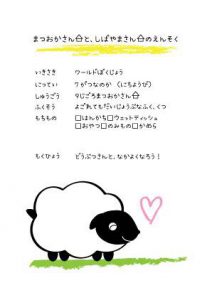 まつおかさん🏠と、しばやまさん🏠のえんそく
いきさき ワールドぼくじょう
にってい 7がつなのか (にちようび)
しゅうごう 9じごろまつおかさん🏠
ふくそう よごれてもだいじょうぶなふく、くつ
もちもの □はんかち□ウェットティッシュ
□おやつ□のみもの□かめら
もくひょう どうぶつさんと、なかよくなろう!